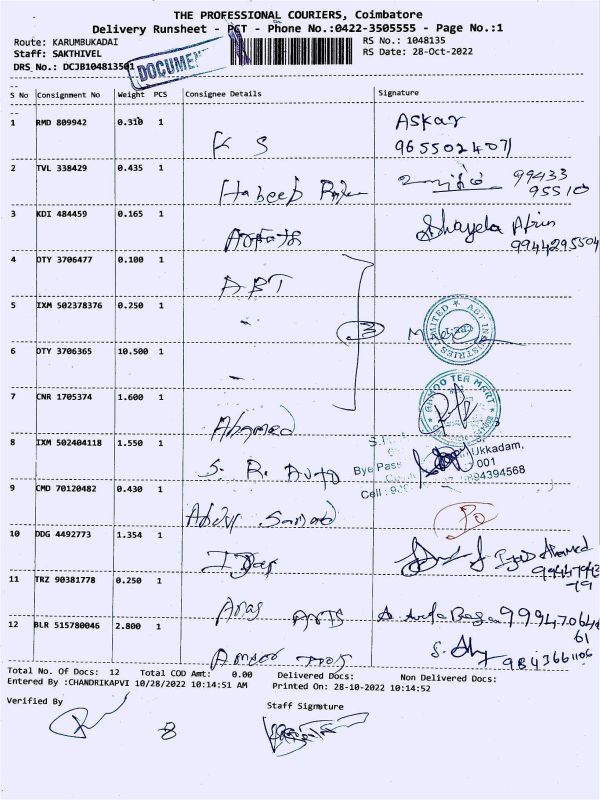 THE PROFESSIONAL COURIERS, Coimbatore
Delivery Runsheet - PCT - Phone No.:0422-3505555 - Page No.:1
Route: KARUMBUKADAI RS No.: 1048135
Staff: SAKTHIVEL RS Date: 28-Oct-2022
DRS No.: DCJB104813501
DOCUMEN
S No Consignment No Weight PCS Consignee Details Signature
1 RMD 809942 0.310 1 K S Askar
9655024071
2 TVL 338429 0.435 1 Habeeb 99433
95510
3 KDI 484459 0.165 1 Shayela
9944295504
4 OTY 3706477 0.100 1 ABT
5 IXM 502378376 0.250 1 3
ABT INDUSTRIES LIMITED
6 OTY 3706365 10.500 1
7 CNR 1705374 1.600 1 Ahamed
TEA MART
8 IXM 502404118 1.550 1 S. R. Auto
Bye Pass Ukkadam,
001
Cell : 94394568
9 CMD 70120482 0.430 1 Abdul Samad
10 DDG 4492773 1.354 1
11 TRZ 90381778 0.250 1 Anas ARTS
12 BLR 515780046 2.800 1 S.
9843661106
Total No. Of Docs: 12 Total COD Amt: 0.00 Delivered Docs: Non Delivered Docs:
Entered By :CHANDRIKAPVI 10/28/2022 10:14:51 AM Printed On: 28-10-2022 10:14:52
Verified By Staff Signature
8